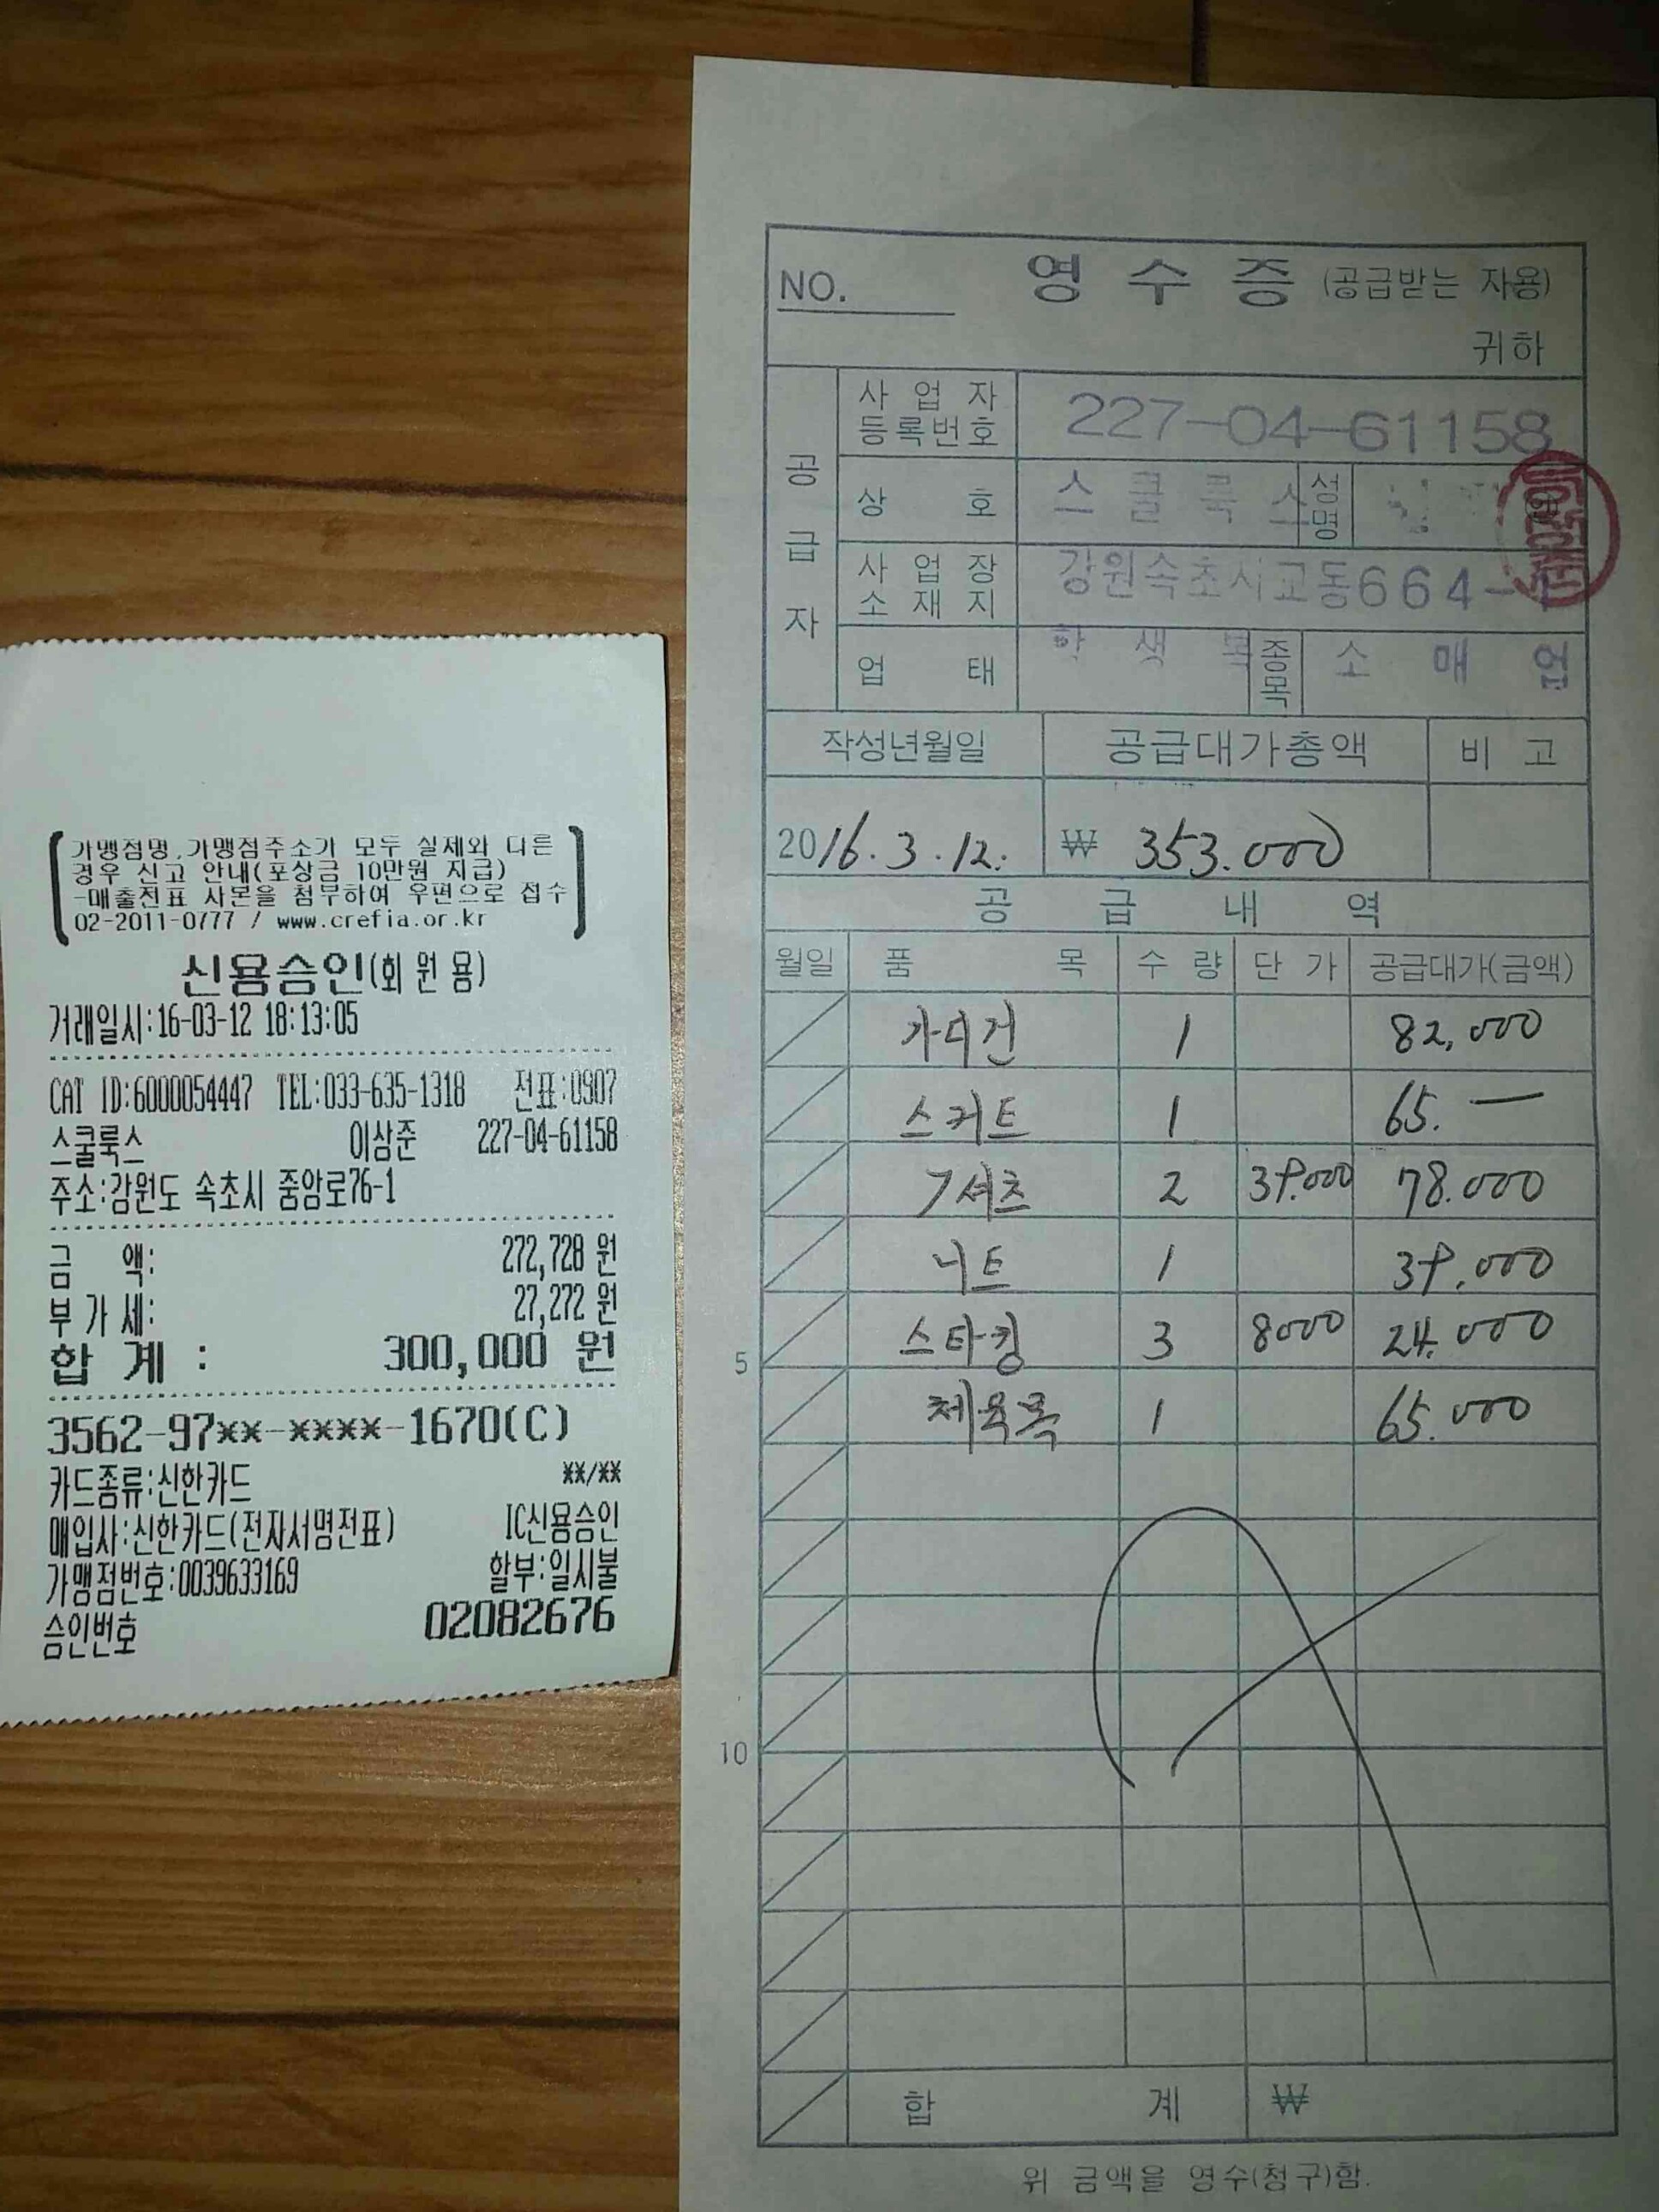 가맹점명,가맹점주소가 모두 실제와 다른
경우 신고 안내(포상금 10만원 지급)
-매출전표 사본을 첨부하여 우편으로 접수
02-2011-0777 / www.crefia.or.kr
신용승인(회원용)
거래일시:16-03-12 18:13:05
CAT ID:6000054447 TEL:033-635-1318 전표:0907
스쿨룩스 이삼준 227-04-61158
주소:강원도 속초시 중앙로76-1
금 액: 272,728 원
부가세: 27,272 원
합 계 : 300,000 원
3562-97**-****-1670(C)
카드종류:신한카드 **/**
매입사:신한카드(전자서명전표) IC신용승인
가맹점번호:0039633169 할부:일시불
승인번호 02082676
NO. 영 수 증 (공급받는 자용)
귀하
공급자
사업자등록번호 227-04-61158
상 호 스쿨룩스 성명
사업장소재지 강원속초시교동664-1
업 태 학생복 종목 소매업
작성년월일 공급대가총액 비 고
2016.3.12. ₩ 353.000
공 급 내 역
월일 품 목 수 량 단 가 공급대가(금액)
가디건 1 82,000
스커트 1 65.—
셔츠 2 39.000 78.000
니트 1 39.000
스타킹 3 8000 24.000
5
체육복 1 65.000
10
합 계 ₩
위 금액을 영수(청구)함.